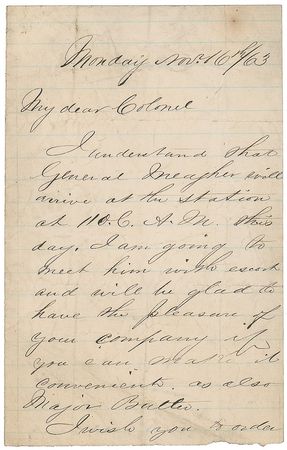 Monday Nov. 16th/63
My dear Colonel
I understand that
General Meagher will
arrive at the station
at 11 O.C. A.M. this
day. I am going to
meet him with escort
and will be glad to
have the pleasure of
your company if
you can make it
convenient. as also
Major
I wish you to order